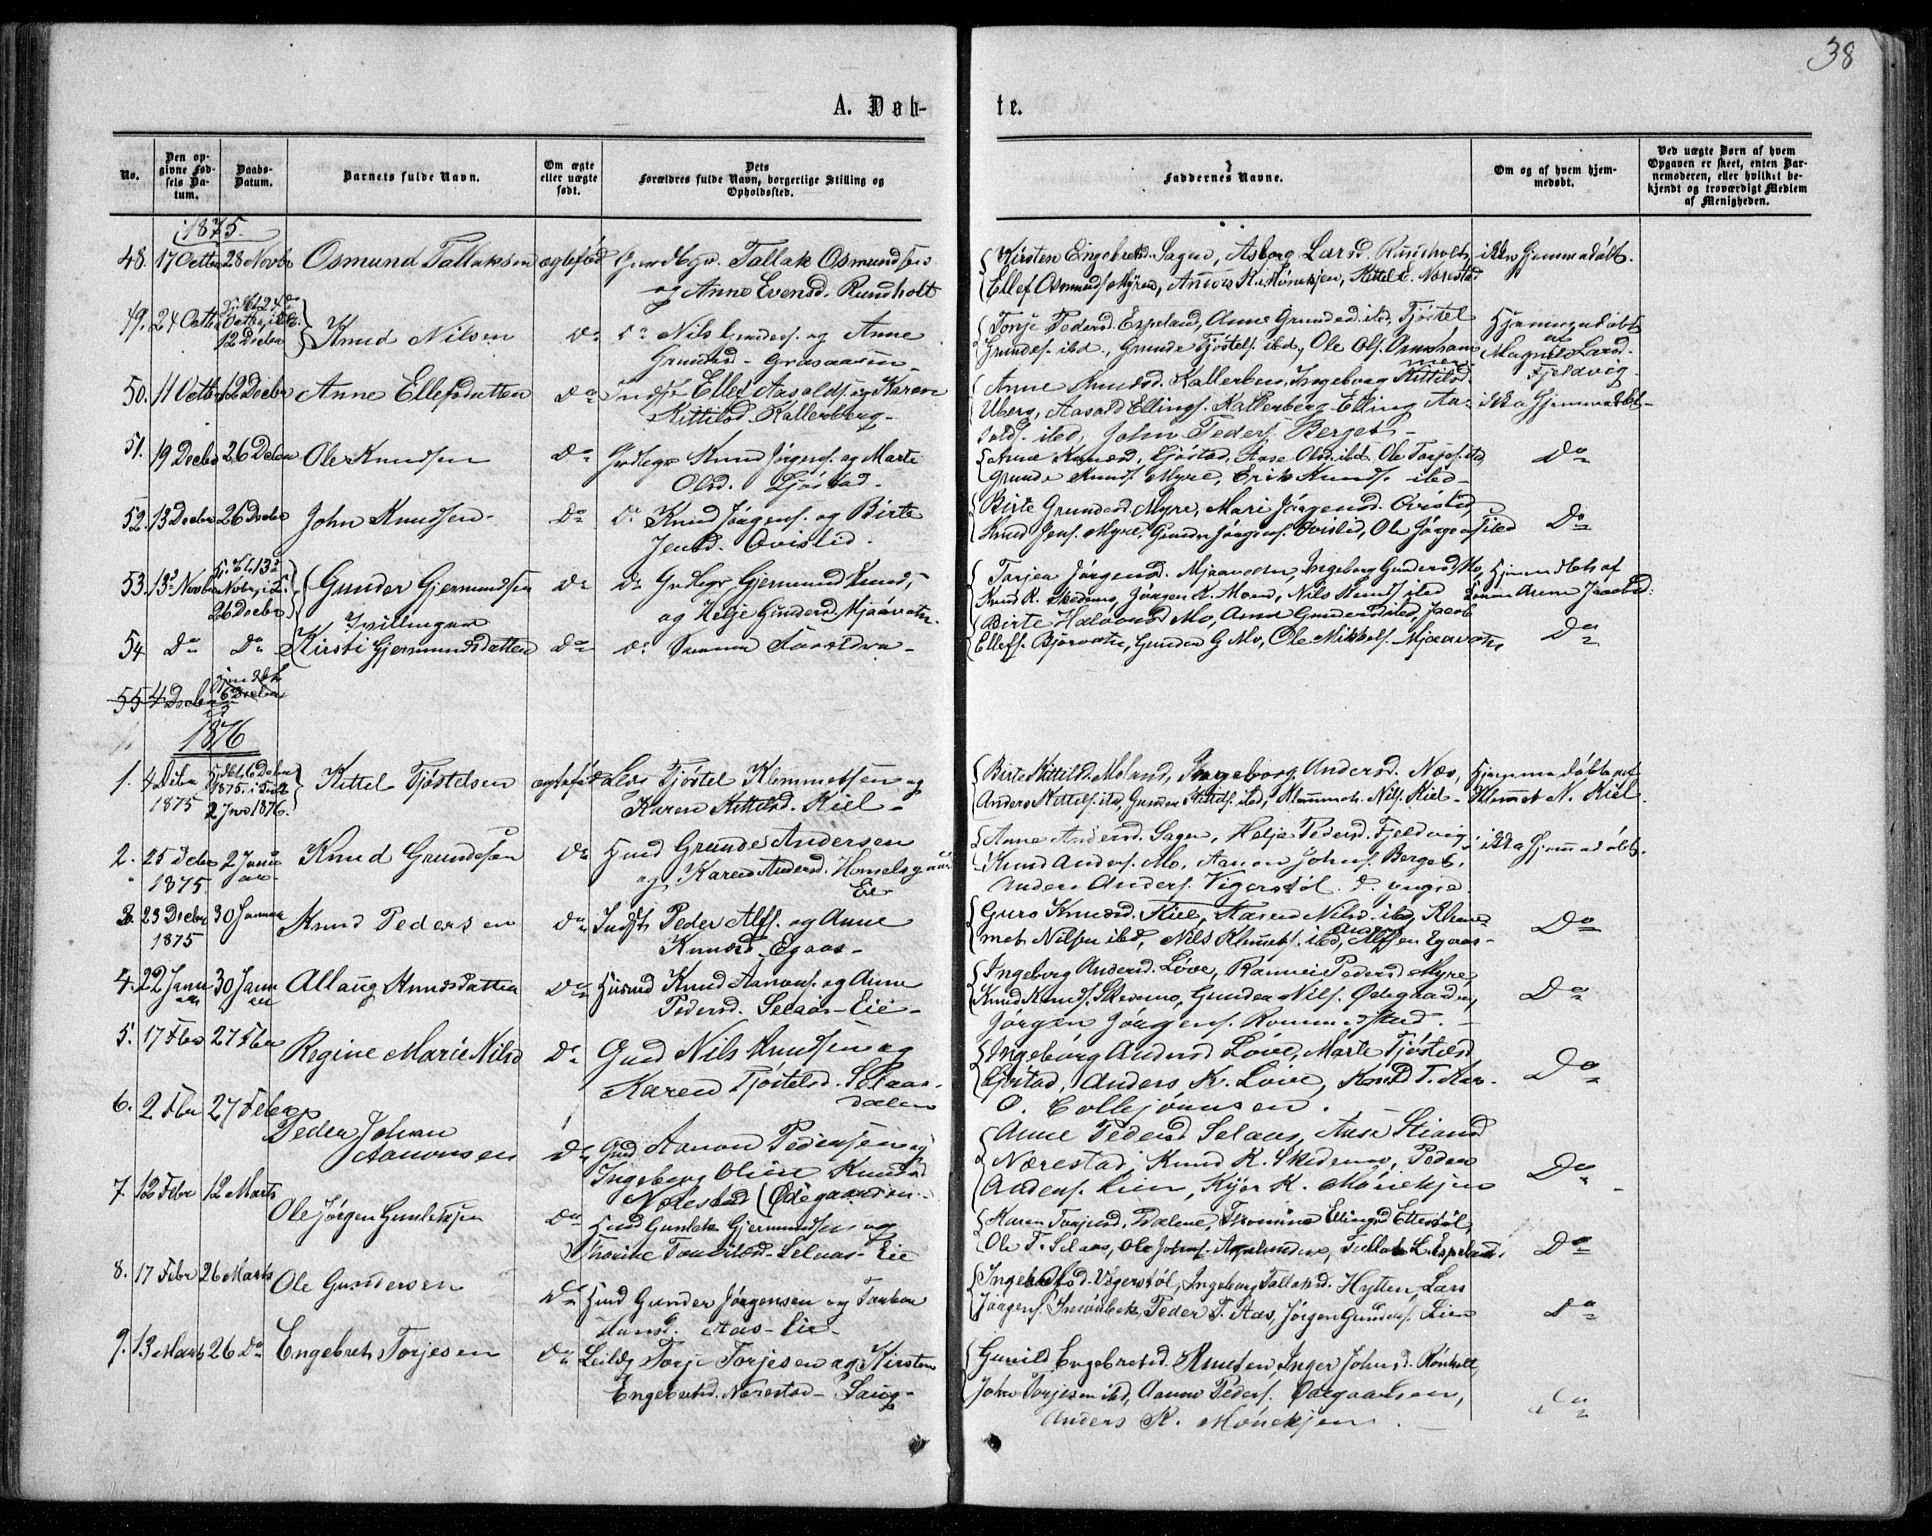 38
A. Døb-
te.
No.
Den op-
givne Fød-
sels Da-
tum.
Daabs-
Datum.
Barnets fulde Navn.
Om ægte
eller uægte
født.
Dets
Forældres fulde Navn, borgerlige Stilling og
Opholdssted.
Faddernes Navne.
Om og af hvem hjem-
medøbt.
Ved uægte Børn af hvem
Opgaven er skeet, enten Bar-
nemoderen, eller hvilket be-
kjendt og troværdigt Medlem
af Menigheden.
1875.
48. 17 Octbr 28 Novbr Osmund Tallaksen ægtefød Tallak Osmunds.
og Anne Evensd. Rundholt
Kirsten Engebretsd. Sagen, Asborg Larsd. Rundholt, ikke Hjemmedøbt.
Ellef Osmunds. Myren, Anders K. Mønekjen, Kittel E. Nærestad
49. 24 Octbr 12 Decbr Knud Nilsen Do Do Nils Grundes. og Anne
Grundesd.
Torje Pedersd. Espeland, Anne Grundesd. ibd, Tjøstel
Grundes. ibd., Grunde Tjøstels. ibd., Ole Ols.
Hjemmedøbt
af
Magnil Larsd.
Fjeldvig
50. 11 Octbr 12 Decbr Anne Ellefsdatter Do Inds. Ellef Aasolds. og Karen
Kittilsd. Kallerberg
Anne Knudsd. Kallerberg, Ingeborg Kittilsd.
Uberg, Aasold Ellings. Kallerberg, Elling Aa-
solds. ibd, John Peders. Berget
ikke Hjemmedøbt
51. 19 Decbr 26 Decbr Ole Knudsen Do Knud Jørgens. og Marte
Olsd. Ljøstad.
Anne Knudsd. Ljøstad, Aase Olsd. ibd. Ole Torjes. ibd,
Grunde Knuds. Myre, Erik Knuds. ibd
Do
52. 13 Decbr 26 Decbr John Knudsen Do Do Knud Jørgens. og Birte
Jensd. Ovisted.
Birte Grundesd. Myre, Mari Jørgensd. Ovisted,
Knud Jens. Myre, Gunder Jørgens. Ovisted, Ole Jørgens. ibd
Do
53. 13 Novbr 26 Decbr Gunder Gjermundsen Do Do Gjermund Knuds.
og Helje Gundersd. Mjaavatn.
Tvillinger
Torjer Jørgensd. Mjaavatn, Ingeborg Gundersd. Mo,
Knud K. Skedmo, Jørgen K. Moen, Nils Knuds. ibd
Anne Jacobsd.
54 Do Do Kirsti Gjermundsdatter Do Do Samme Forældre
Birte Halvorsd. Mo, Anne Gundersd. ibd, Jacob
Ellefs. Bjørvatn, Gunder G. Mo, Ole Mikkels. Mjaavatn,
Do
55 4 Decbr
1876
1. 4 Decbr 1875 2 Jan 1876. Kittel Tjøstelsen ægtefød Tjøstel Klemmetsen og
Karen Kittilsd. Kiel
Birte Kittilsd. Moland, Ingeborg Andersd. Næs,
Anders Kittels. ibd, Gunder Kittels. ibd, Klemmet Nils. Kiel
Hjemmedøbt af
Klemmet N. Kiel.
2. 25 Decbr 1875 2 Januar Knud Grundesen Do Husd Grunde Andersen
og Karen Andersd.
Eie
Anne Andersd. Sagen, Helje Pedersd. Fjeldvig,
Knud Anders. Mo, Aanon Johns. Berget,
Anders Anders. Vigerstøl d. yngre.
ikke Hjemmedøbt.
3. 23 Decbr 1875 30 Januar Knud Pedersen Do Indst Peder Alfs. og Anne
Knudsd. Egaas
Guro Knudsd. Kiel, Karen Nilsd. ibd, Klem-
met Nilsen ibd, Nils Klemets. ibd, Anders Alfsen Egaas
Do
4. 22 Januar 30 Januar Allaug Knudsdatter Do Husmd Knud Aanons. og Anne
Pedersd. Selaas-Eie
Ingeborg Andersd. Løve, Rannei Pedersd. Myre,
Knud Knuds. Skedmo, Gunder Nils. Ødegaarden,
Jørgen Jørgens. Rommestad.
Do
5. 17 Febr 27 Febr Regine Marie Nilsd Do Husd Nils Knudsen og
Karen Tjøstelsd. Selaas-
dalen
Ingeborg Andersd Løve, Marte Tjøstelsd
Ljøstad, Anders K. Løve, Knud T.
O. Collejørnsen.
Do
6. 2 Febr 27 Febr Peder Johan
Aanonsen Do Husd Aanon Pedersen og
Ingeborg Oline Knudsd
Nærestad (Ødegaarden
Anne Pedersd Selaas, Anse Stiansd
Nærestad, Knud K. Skedmo, Peder
Anders. Lien, Kjør K. Mønekjen
Do
7. 12 Febr 12 Marts Ole Jørgen Gunleksen Do Husd Gunlek Gjermundsen og
Thorine Torkildsd. Selaas-Eie
Karen Torjusd. Dalene, Thomine Ellingsd Ettestøl,
Ole T. Selaas, Ole Johns. Tallak L. Espeland
Do
8. 17 Febr 26 Marts Ole Gundersen Do Husd Gunder Jørgensen og Torbor
Hansd. Aas-Eie
Vigerstøl, Ingeborg Tallaksd. Hytten, Lars
Jørgens. Peder T. Aas, Jørgen Gunders. Lien
Do
9. 13 Marts 26 Do Engebret Torjesen Do Leilds Torje Torjesen og Kirsten
Engebretsd. Nærestad
Gunild Engebretsd. Knuten, Inger Johnsd. Rønholt
John Torjesen ibd, Aanon Peders. Ødegaarden,
Anders K. Mønekjen.
Do